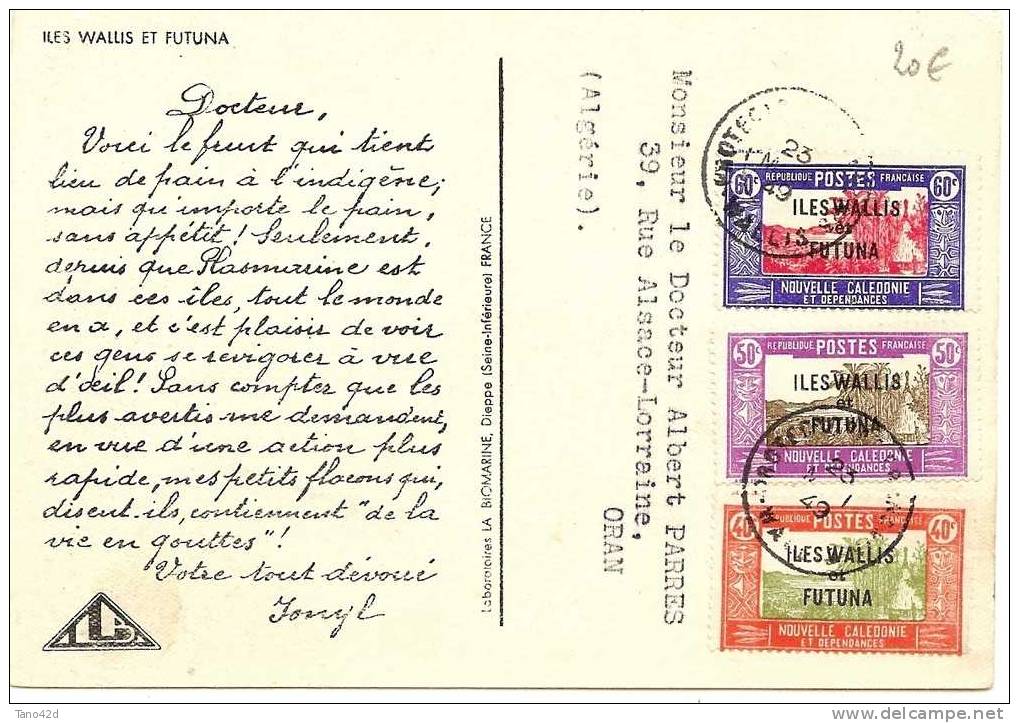 ILES WALLIS ET FUTUNA
Docteur,
Voici le fruit qui tient
lieu de pain à l'indigène;
mais qu'importe le pain,
sans appétit! Seulement,
depuis que Plasmarine est
dans ces îles, tout le monde
en a, et c'est plaisir de voir
ces gens se revigorer à vue
d'œil! Sans compter que les
plus avertis me demandent,
en vue d'une action plus
rapide, mes petits flacons qui,
disent-ils, contiennent "de la
vie en gouttes"!
Votre tout dévoué
Ionyl
Laboratoires LA BIOMARINE, Dieppe (Seine-Inférieure) FRANCE
Monsieur le Docteur Albert PARRES
39, Rue Alsace-Lorraine,
ORAN
(Algérie).
20€
23
49
WALLIS
60c REPUBLIQUE POSTES FRANCAISE 60c
ILES WALLIS
et
FUTUNA
NOUVELLE CALEDONIE
ET DEPENDANCES
50c REPUBLIQUE POSTES FRANCAISE 50c
ILES WALLIS
et
FUTUNA
NOUVELLE CALEDONIE
ET DEPENDANCES
49
40c REPUBLIQUE POSTES FRANCAISE 40c
ILES WALLIS
et
FUTUNA
NOUVELLE CALEDONIE
ET DEPENDANCES
Tano42d
delcampe.net